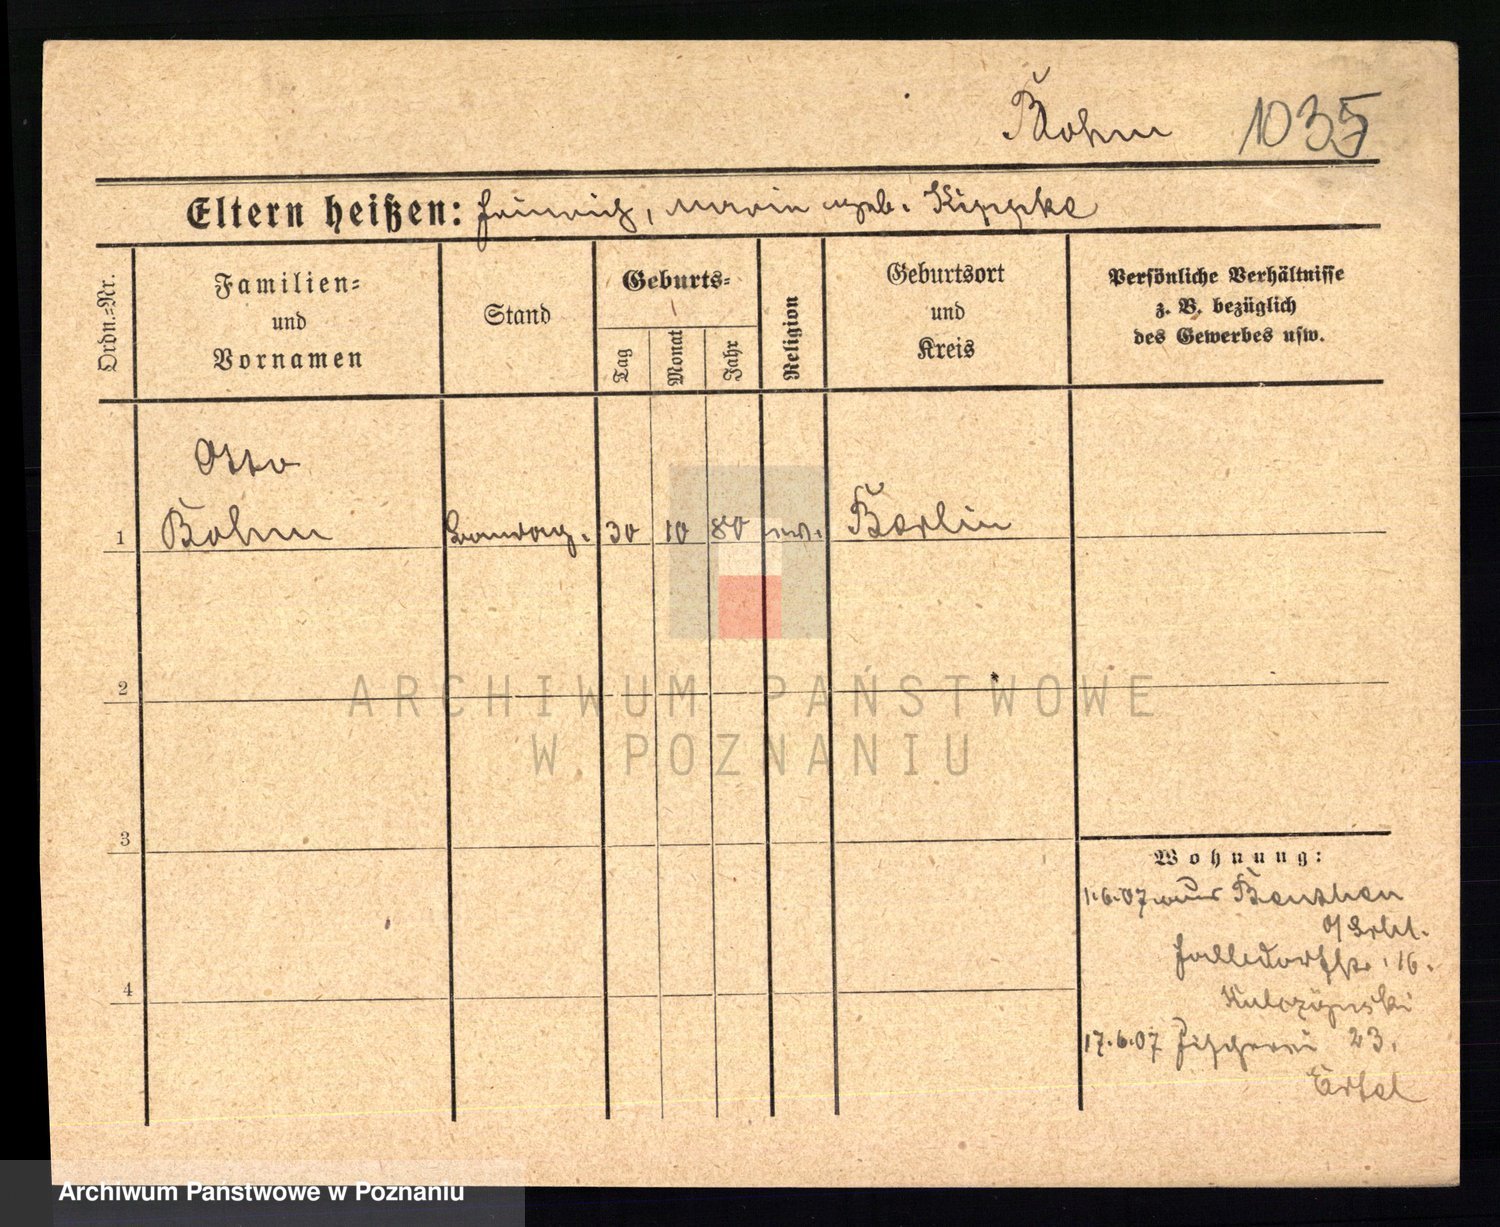 Bohm 1035
Eltern heißen: Heinrich, Marie geb. Kippke
Ordn.-Nr.
Familien-
und
Vornamen
Stand
Geburts-
Tag
Monat
Jahr
Religion
Geburtsort
und
Kreis
Persönliche Verhältnisse
z. B. bezüglich
des Gewerbes usw.
Otto
1 Bohm 30 10 80 ev. Berlin
2
ARCHIWUM PAŃSTWOWE
W POZNANIU
3
Wohnung:
1.6.07 aus Beuthen
16.
Kulczynski
4
17.6.07 Fischerei 23.
Ertel
Archiwum Państwowe w Poznaniu